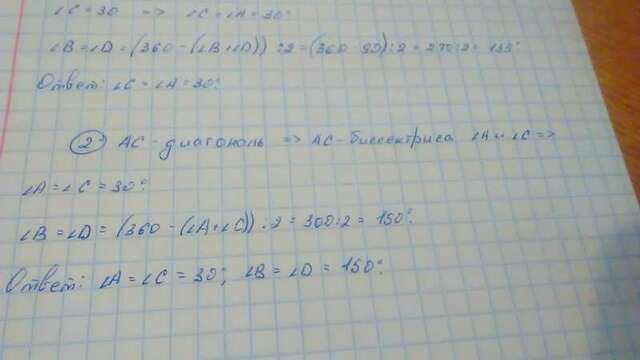 ∠C = 30 => ∠C = ∠A = 30°.
∠B = ∠D = (360 - (∠B + ∠D)) : 2 = (360 - 90) : 2 = 270 : 2 = 135°
Ответ: ∠C = ∠A = 30°.
2) AC - диагональ => AC - биссектриса ∠A и ∠C =>
∠A = ∠C = 30°.
∠B = ∠D = (360 - (∠A + ∠C)) : 2 = 300 : 2 = 150°.
Ответ: ∠A = ∠C = 30°; ∠B = ∠D = 150°.